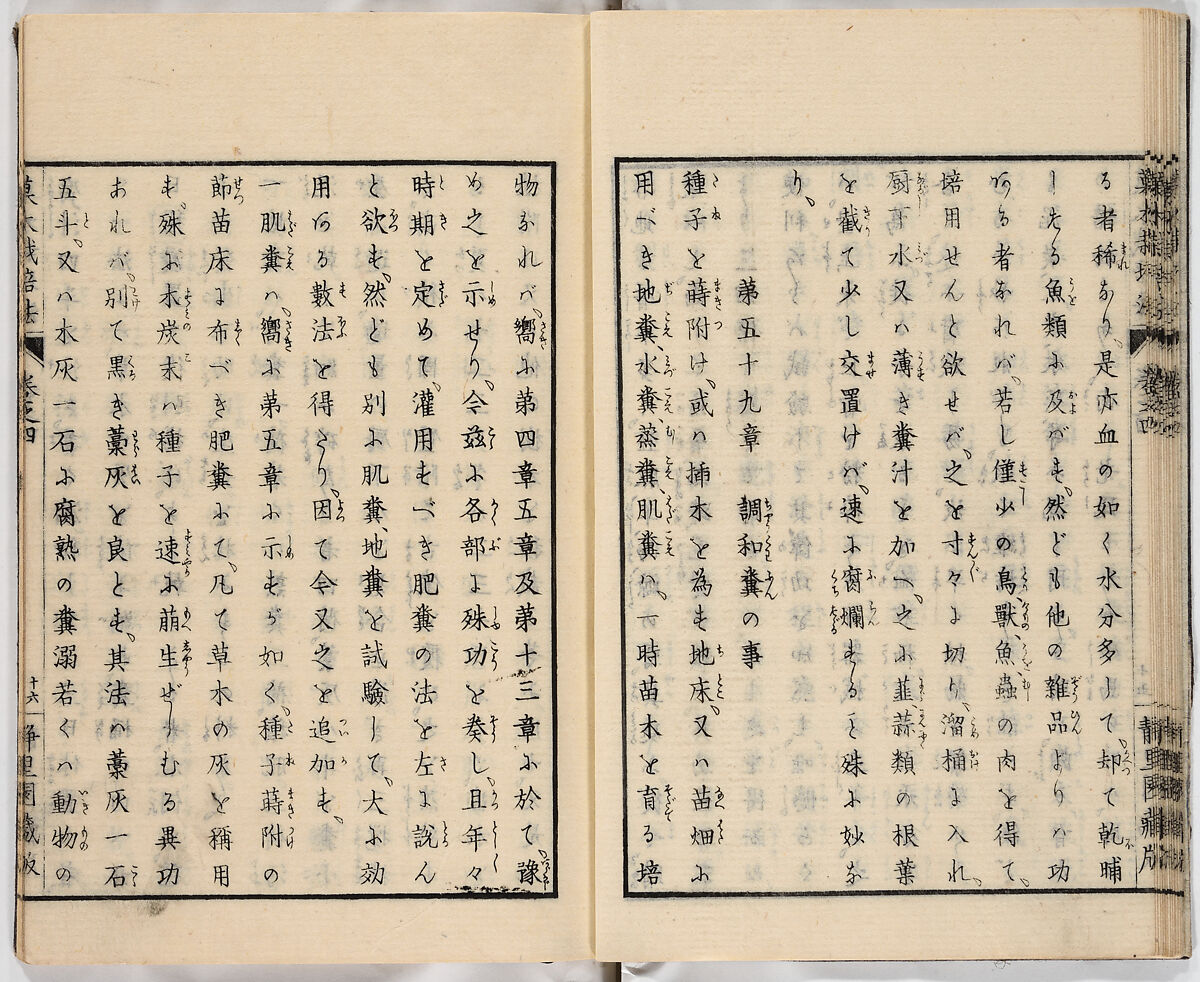 る者稀なり、是亦血の如く水分多して、却て乾晡
したる魚類に及バず、然ども他の雑品よりハ功
ある者なれバ、若し僅少の鳥、獸、魚、蟲の肉を得て、
培用せんと欲せバ、之を寸々に切り、溜桶に入れ、
厨下水又ハ薄き糞汁を加へ、之に韮、蒜類の根葉
を截て少し交置けバ、速に腐爛すると殊に妙な
り、
第五十九章 調和糞の事
種子を蒔附け、或ハ挿木を為す地床、又ハ苗畑に
用べき地糞、水糞、蒸糞、肌糞ハ、一時苗木を育る培
物なれバ、嚮に第四章五章及第十三章に於て、豫
め之を示せり、今茲に各部に殊功を奏し、且年々
時期を定めて、灌用すべき肥糞の法を左に説ん
と欲す、然ども別に肌糞、地糞を試驗して、大に効
用ある數法を得たり、因て今又之を追加す、
一肌糞ハ、嚮に第五章に示すが如く、種子蒔附の
節苗床に布べき肥糞にて、凡て草木の灰を稱用
す、殊に木炭末ハ種子を速に萠生ぜしむる異功
あれバ、別て黒き藁灰を良とす、其法ハ藁灰一石
五斗、又ハ木灰一石に腐熟の糞溺若くハ動物の
菓木栽培法 卷之四 十六 静里園藏板